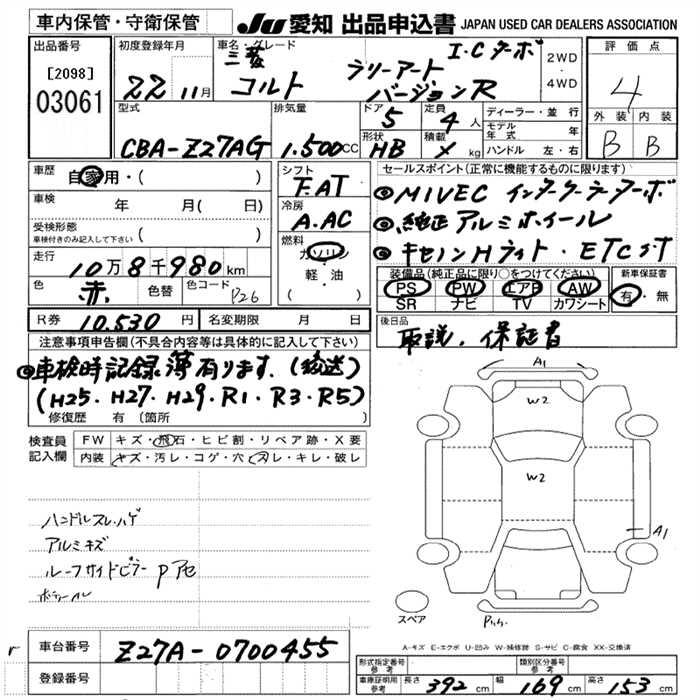 車内保管・守衛保管
JU 愛知 出品申込書 JAPAN USED CAR DEALERS ASSOCIATION
出品番号
[2098]
03061
初度登録年月
22 11月
車名・グレード
三菱 コルト ラリーアート I.Cターボ
バージョンR
2WD
・
4WD
評価点
4
外装 内装
B B
型式
CBA-Z27AG
排気量
1.500cc
ドア
5
定員
4人
形状
HB
積載
× kg
ディーラー・並行
モデル年式 年
ハンドル 左・右
車歴
自家用・( )
車検
年 月( 日)
受検形態
車検付きのみ記入して下さい ( )
走行
10万8千980km
色
赤
色替
色コード
P26
シフト
F.AT
冷房
A.AC
燃料
ガソリン
・
軽・油
( )
セールスポイント(正常に機能するものに限ります)
◎MIVEC インタークーラーターボ
◎純正アルミホイール
◎キセノンHライト・ETC付
装備品(純正品に限り○をつけてください)
PS PW エアB AW
SR ナビ TV カワシート
新車保証書
有・無
R券 10.530円
名変期限 月 日
後日品
取説、保証書
注意事項申告欄(不具合内容等は具体的に記入して下さい)
◎車検時記録簿有ります.(後送)
(H25.H27.H29.R1.R3.R5)
修復歴 有(箇所 )
検査員記入欄
FW キズ・飛石・ヒビ割・リペア跡・X要
内装 キズ・汚レ・コゲ・穴・スレ・キレ・破レ
ハンドルスレ.ハゲ
アルミキズ
ルーフサイドピラーPアセ
A1
W2
W2
A1
スペア
A-キズ E-エクボ U-凹み W-補修跡 S-サビ C-腐食 XX-交換済
r
車台番号 Z27A-0700455
登録番号
形式指定番号参考
類別区分番号参考
車庫証明用参考 長さ 392cm 幅 169cm 高さ 153cm